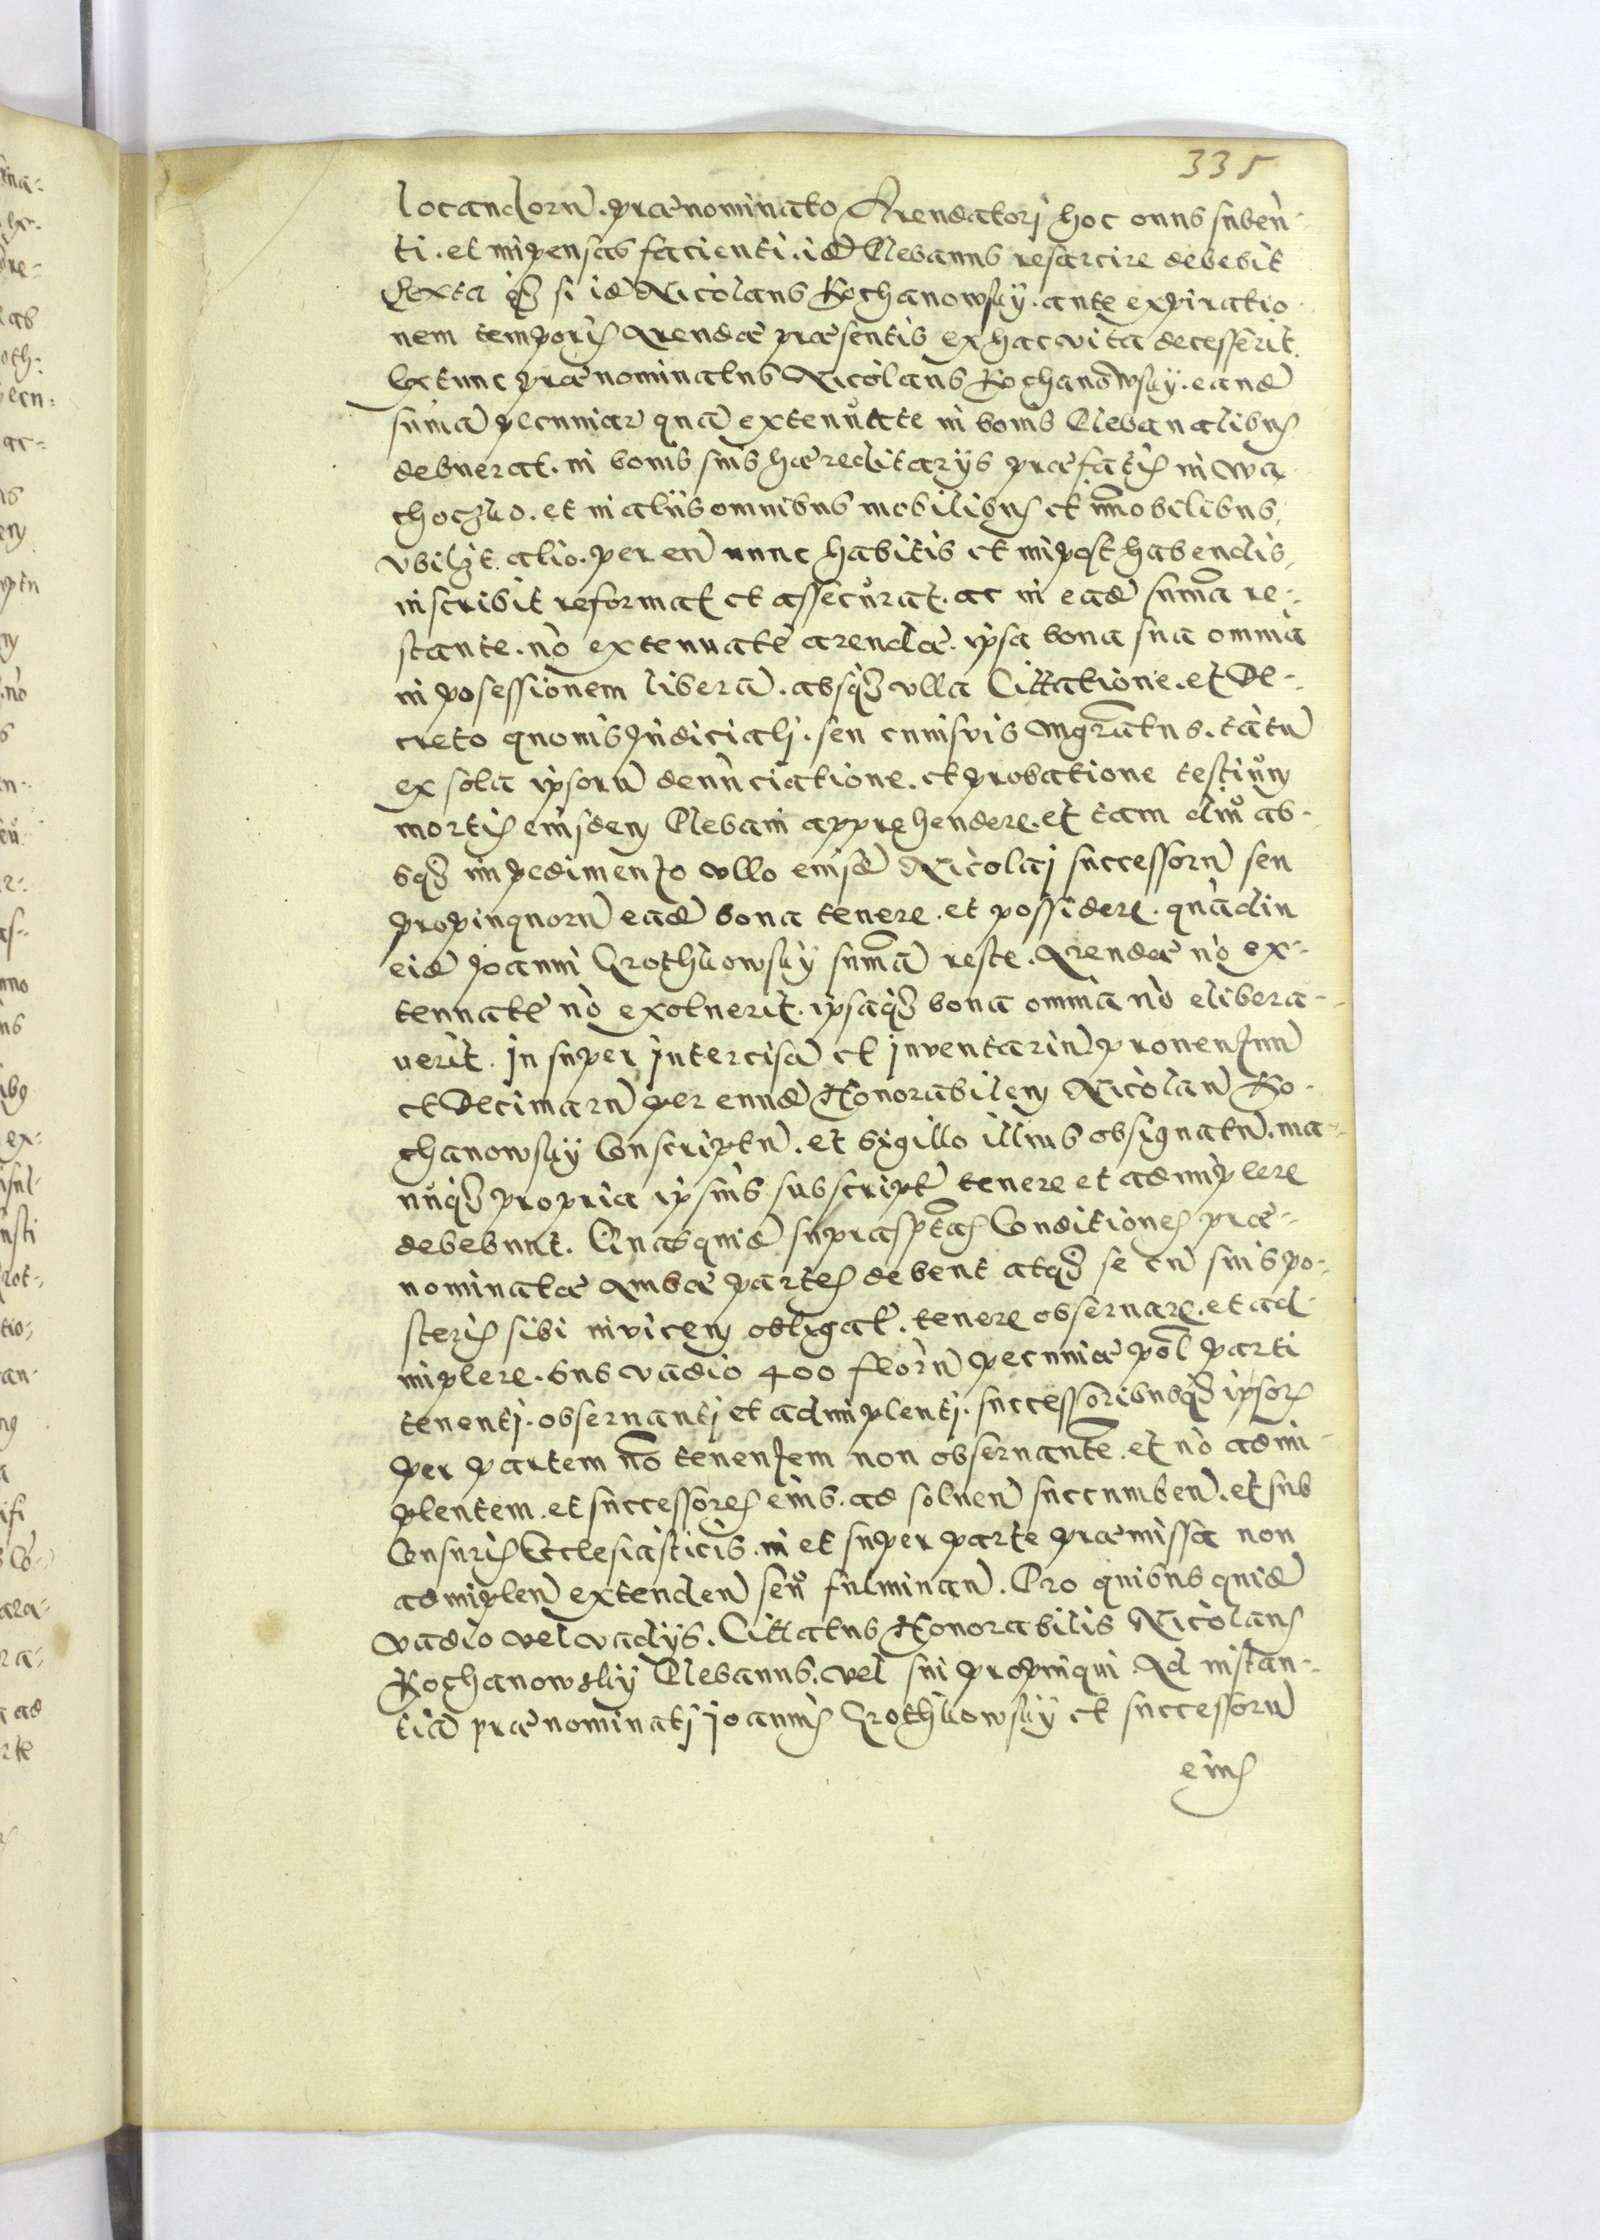 335
locandorũ. prænominato Arendatorj hoc onus subeñ-
ti. et impensas facienti. id Plebanus resarcire debebit
Sexta qđ si id Nicolaus Kochanowsky. ante expiratio
nem temporis Arendæ præsentis ex hac vita decesserit.
Extunc prænominatus Nicolaus Kochanowsky. eand
sumã pecuniar quã extenuate in bonis Plebanalibus
debuerat. in bonis suis hæreditarys præfatis in Wa
choczko. et in aliis omnibus mobilibus et immobilibus,
vbilȝt alio. per eũ nunc habitis et impost habendis,
inscribit reformat et assecurat. ac in ead summa re-
stante. nõ extenuatæ arendæ. ipsa bona sua omnia
in posessionem liberã. absqȝ vlla Cittatione. et De-
creto quovis Judiciali. seu cuiusvis Mgratus. tãtũ
ex sola ipsorũ denũciatione. et probatione testium
mortis eiusdem Plebani apprehendere. et tam diu ab-
sqȝ impedimento vllo eiusd Nicolai successorũ seu
propinquorũ ead bona tenere. et possidere. quãdiu
eid Joanni Grothkowsky sumã reste. Arendæ nõ ex-
tenuatæ nõ exoluerit. ipsaqȝ bona omnia nõ elibera-
uerit. Insuper intercisã et inventariũ prouentuũ
et Decimarũ per eund Honorabilem Nicolaũ Ko-
chanowsky Conscriptũ. et sigillo illius obsignatũ. ma-
nuqȝ propria ipsius subscript tenere et adimplere
debebunt. Quas quid suprasptas Conditiones præ-
nominatæ Ambæ partes debent atqȝ se cũ suis po-
steris sibi invicem obligat. tenere obseruare. et ad-
implere. sub vadio 400 florũ pecuniæ pol parti
tenentj. obseruantj et adimplentj. successoribusqȝ ipsorȝ
per partem no tenentem non obseruante. et nõ adim
plentem. et successores eius. ad soluen succumben. et sub
Censuris Ecclesiasticis. in et super parte præmissa non
adimplen extenden seu fulminan. Pro quibus quid
vadio vel vadys. Cittatus Honorabilis Nicolaus
Kochanowsky Plebanus. vel sui propinqui Ad instan-
tiã prænominatj Joannis Grothkowsky et successorũ
eius